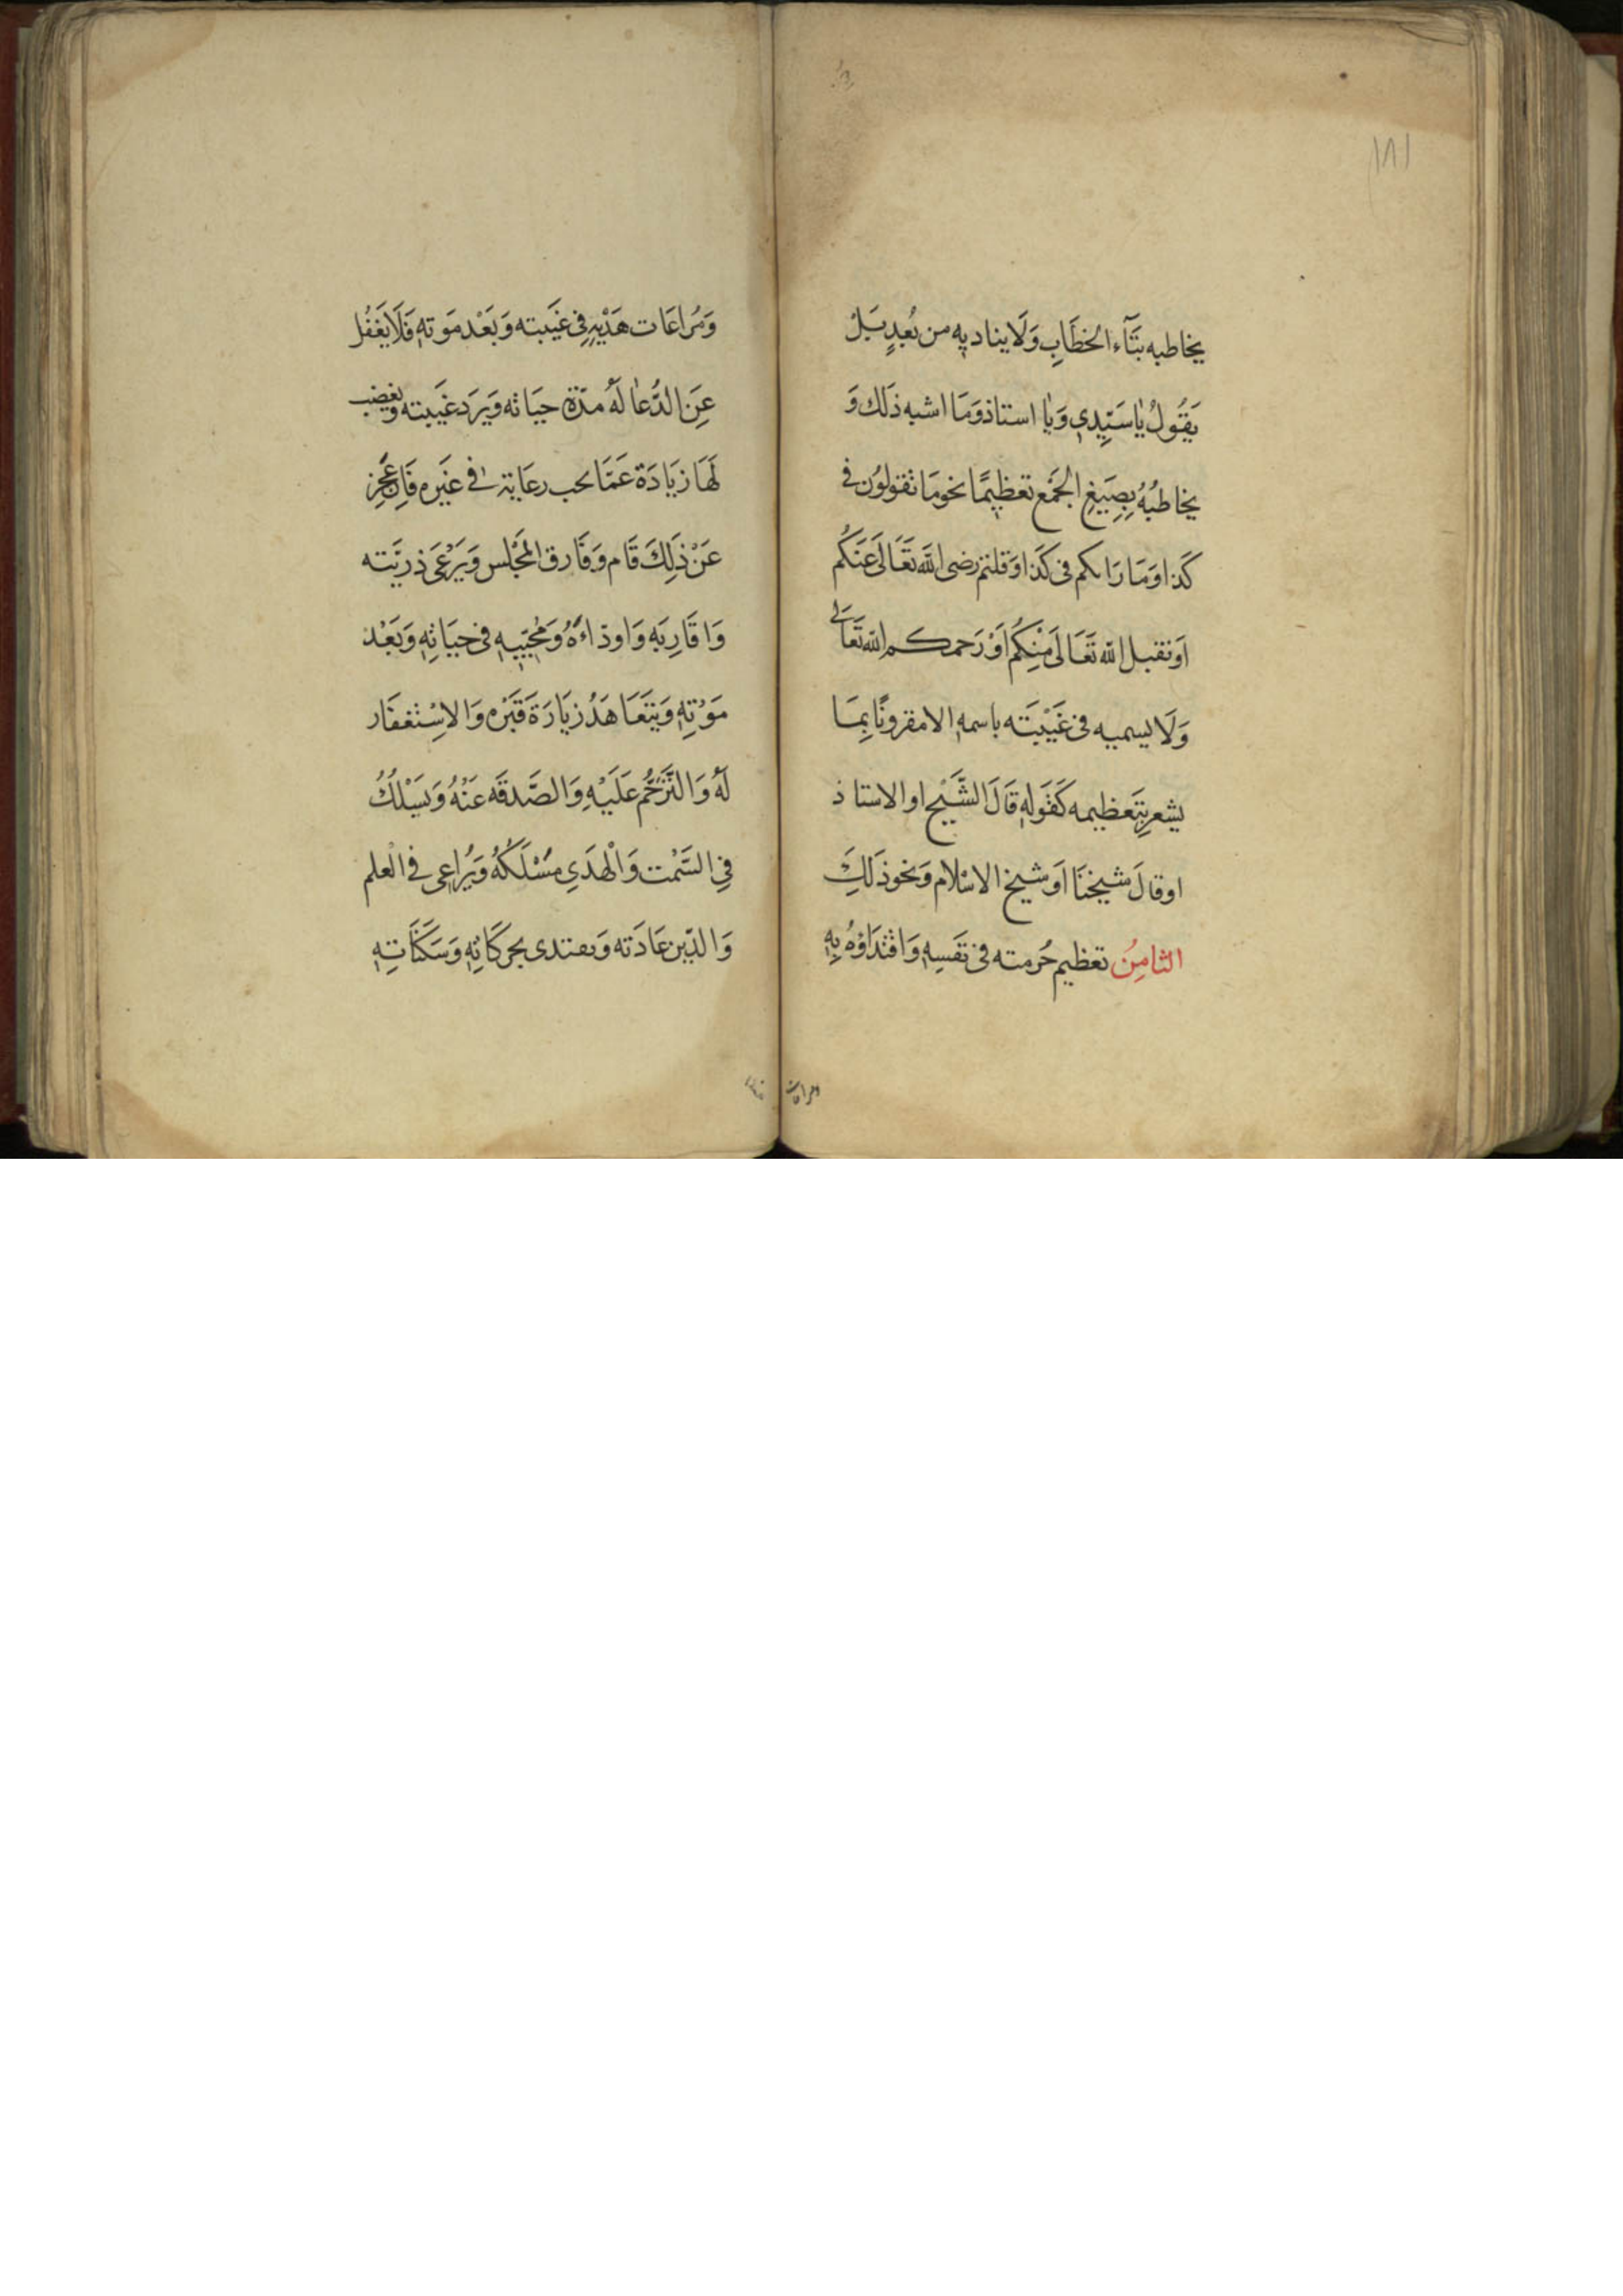 ١٨١
يخاطبه بتَآء الخطَابِ وَلَا يناديه من بُعدٍ بَلْ
يَقُولُ يٰا سَيِّدِي وَيٰا استاذ وَمَا اشبه ذَلك وَ
يخاطبُهُ بِصِيَغِ الجَمْع تعَظيمًا نحو مَا تقولوُن في
كَذا وَمَا رَايكم فى كَذا اوَ قلتم رضى الله تعَالَى عَنكُم
اوَ تقبل الله تَعَالَى مِنْكُم اوْ رَحمكم الله تَعَالَى
وَلَا يسميه فى غَيْبَته باسمهِ الا مقرونًا بِمَا
يشعر بِتَعظيمه كَقَولهِ قَالَ الشَّيْخ او الاستاذ
او قالَ شيخنَا اوَ شيخ الاسْلام وَنحو ذَلِكَ
الثامِنُ تعَظيم حُرمته فى نَفسِهِ وَاقْتدَاؤهُ بِهِ
ومراعات
وَمُراعَات هَدْيِهِ فِى غَيبته وَبَعْد مَوتهِ فَلَا يَغفُل
عِنَ الدُّعا لَهُ مدّة حيَاته وَيَرد غَيبته وَيغضب
لَهَا زيَادَة عَمَّا يجب رعَايته فى غَيره فَاِن عَجِز
عَنْ ذَلِكَ قَام وَفَارق المَجْلس وَيَرْعَى ذريّته
وَاقَارِبَهِ وَاودّاءَهُ وَمُحِبّيهِ فى حيَاتِهِ وَبَعْد
مَوْتِهِ وَيَتعَاهَدُ زيَارَة قَبْره وَالاسِْتغفَار
لَهُ وَالتَّرَحُّم عَلَيْهِ وَالصَّدقَه عَنْهُ وَيَسْلُكُ
فِى السَّمْت وَالْهَدَىِ مَسْلَكَهُ وَيُرَاعِى في العلم
وَالدّين عَادَته وَيقتدى بحركَاتِهِ وَسَكنَاتِهِ